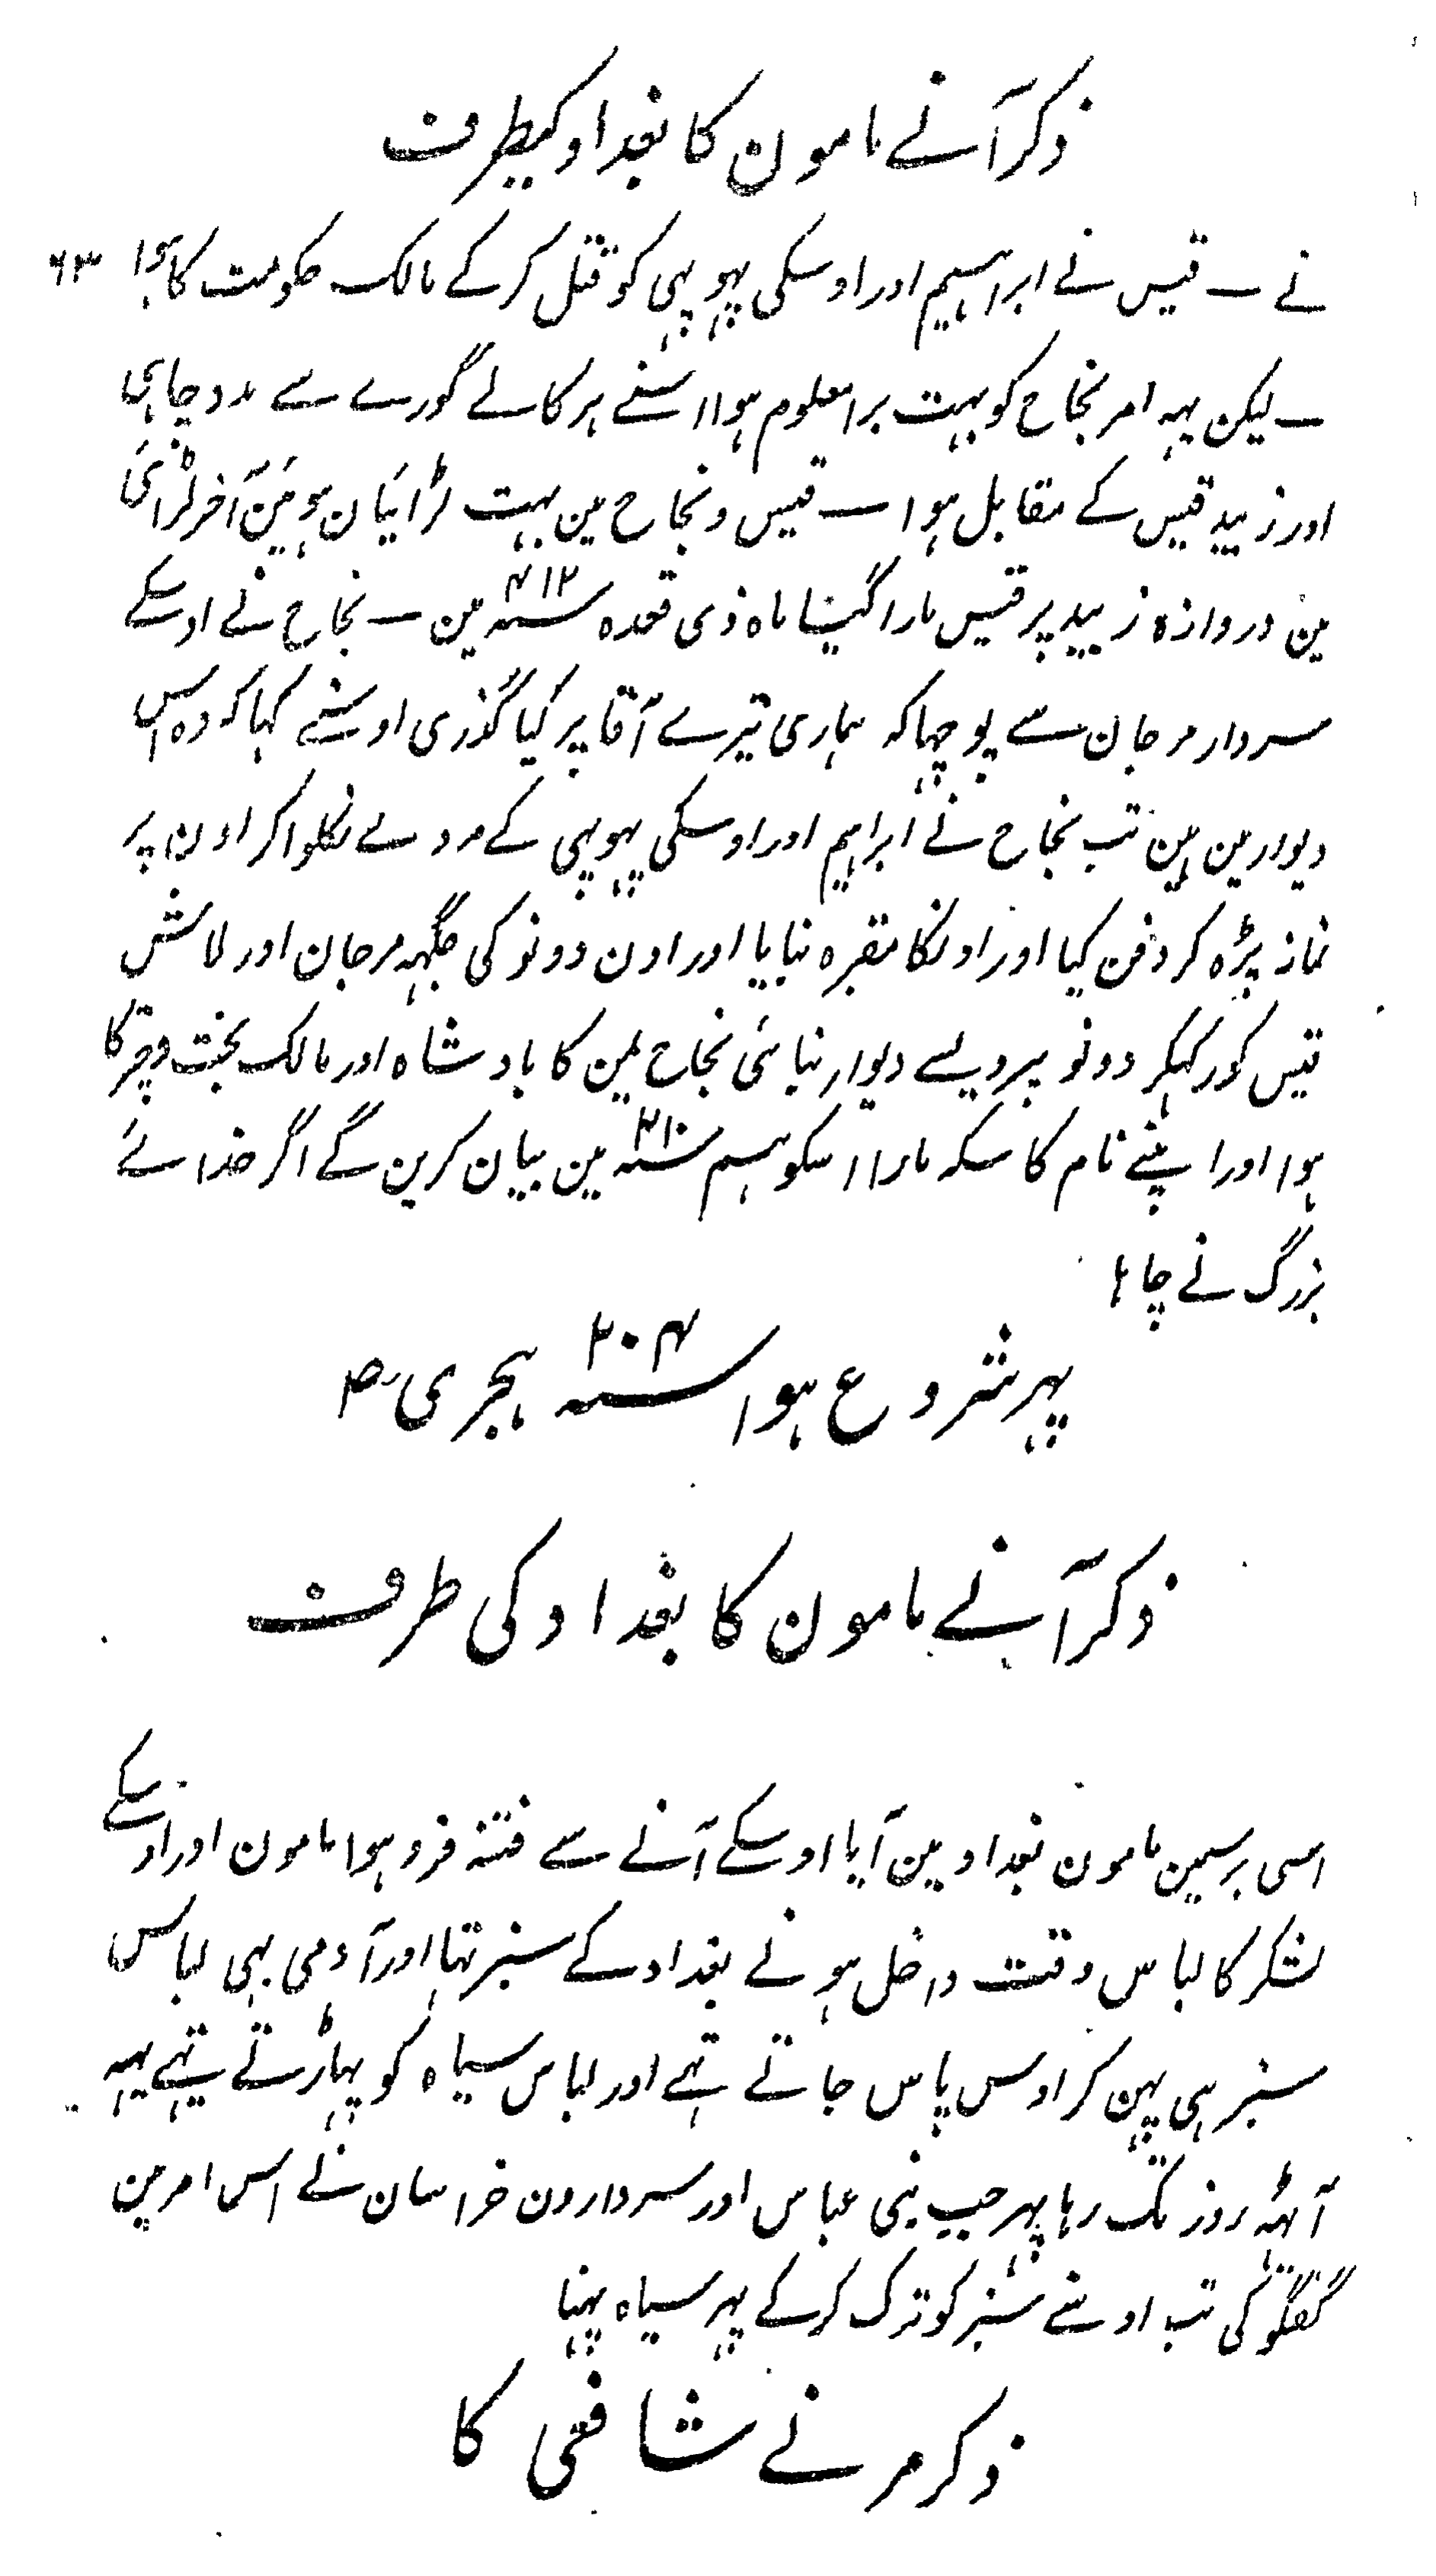 ذکر آنے مامون کا بغداد کیطرف
نے ــ قیس نے ابراہیم اور اوسکی پہوپہی کو قتل کر کے مالک حکومت کا ہوا ۶۳
ــ لیکن یہہ امر نجاح کو بہت برا معلوم ہوا اسنے ہر کالے گورے سے مدد چاہی
اور زبید قیس کے مقابل ہوا ــ قیس و نجاح مین بہت لڑائیان ہوئین آخر لڑائی
مین دروازہ زبید پر قیس مارا گیا ماہ ذی قعدہ سنہ ۴۱۲ مین ــ نجاح نے اوسکے
سردار مرجان سے پوچہا کہ ہماری تیرے آقا پر کیا گذری اوسنے کہا کہ وہ اس
دیوار مین ہین تب نجاح نے ابراہیم اور اوسکی پہوپہی کے مردے نکلوا کر اون پر
نماز پڑہ کر دفن کیا اور اونکا مقبرہ بنایا اور اون دونو کی جگہہ مرجان اور لاش
قیس کو رکہکر دونو پر ویسے دیوار بنائی نجاح یمن کا بادشاہ اور مالک تخت و چتر کا
ہوا اور اپنے نام کا سکہ مارا اسکو ہم سنہ ۴۱۰ مین بیان کرین گے اگر خدائے
بزرگ نے چاہا
پہر شروع ہوا سنہ ۲۰۴ ہجری
ذکر آنے مامون کا بغداد کی طرف
اسی برسمین مامون بغداد مین آیا اوسکے آنے سے فتنہ فرو ہوا مامون اور اوسکے
لشکر کا لباس وقت داخل ہونے بغداد کے سبز تہا اور آدمی بہی لباس
سبز ہی پہن کر اوس پاس جاتے تہے اور لباس سیاہ کو پہاڑتے تہے یہہ
آٹہہ روز تک رہا پہر جب بنی عباس اور سردارون خراسان نے اس امر مین
گفتگو کی تب اوسنے سبز کو ترک کر کے پہر سیاہ پہنا
ذکر مرنے شافعی کا